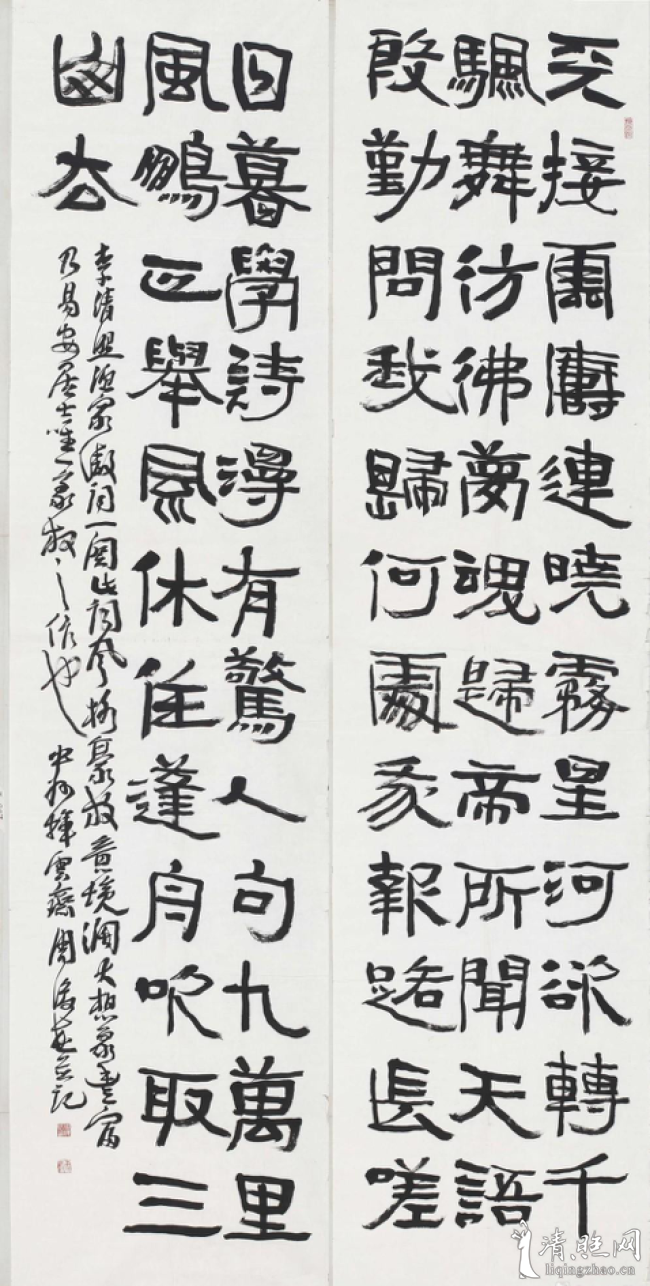 天接雲濤連曉霧星河欲轉千
颿舞彷彿夢魂歸帝所聞天語
殷勤問我歸何處我報路長嗟
日暮學詩漫有驚人句九萬里
風鵬正舉風休住蓬舟吹取三
山去
李清照漁家傲詞一闋此詞風格豪放意境闊大想象豐富
乃易安居士唯一豪放之作也 中州揮雲齋周俊杰並記
清照网
liqingzhao.cn